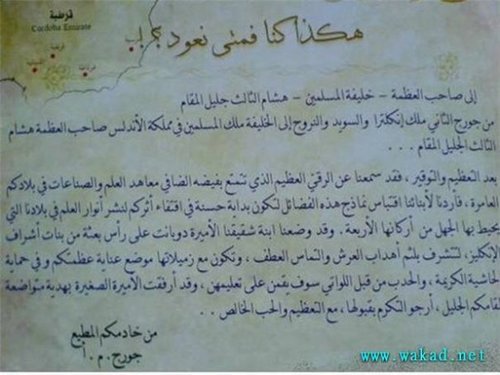 قرطبة
Cordoba Emirate
هكذا كنا فمتى نعود
إلى صاحب العظمة - خليفة المسلمين - هشام الثالث جليل المقام
من جورج الثاني ملك إنكلترا والسويد والنروج إلى الخليفة ملك المسلمين في مملكة الأندلس صاحب العظمة هشام
الثالث الجليل المقام . . .
بعد التعظيم والتوقير ، فقد سمعنا عن الرقي العظيم الذي تتمتع بفيضه الضافي معاهد العلم والصناعات في بلادكم
العامرة ، فأردنا لأبنائنا اقتباس نماذج هذه الفضائل لتكون بداية حسنة في اقتفاء أثركم لنشر أنوار العلم في بلادنا التي
يحيط بها الجهل من أركانها الأربعة . وقد وضعنا ابنة شقيقنا الأميرة دوبانت على رأس بعثة من بنات أشراف
الإنكليز ، لتتشرف بلثم أهداب العرش والتماس العطف ، وتكون مع زميلاتها موضع عناية عظمتكم و في حماية
الحاشية الكريمة ، والحدب من قبل اللواتي سوف يقمن على تعليمهن ، وقد أرفقت الأميرة الصغيرة بهدية متواضعة
لمقامكم الجليل ، أرجو التكرم بقبولها ، مع التعظيم والحب الخالص . .
من خادمكم المطيع
جورج . م . ا
www.wakad.net